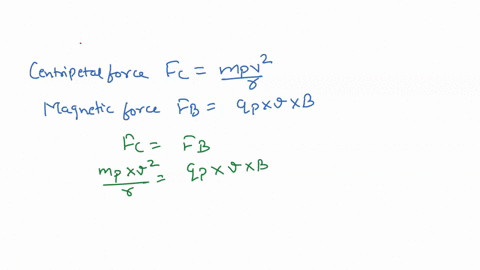 Centripetal force Fc = mpv²/r
Magnetic force FB = qp×v×B
Fc = FB
mp×v²/r = qp×v×B